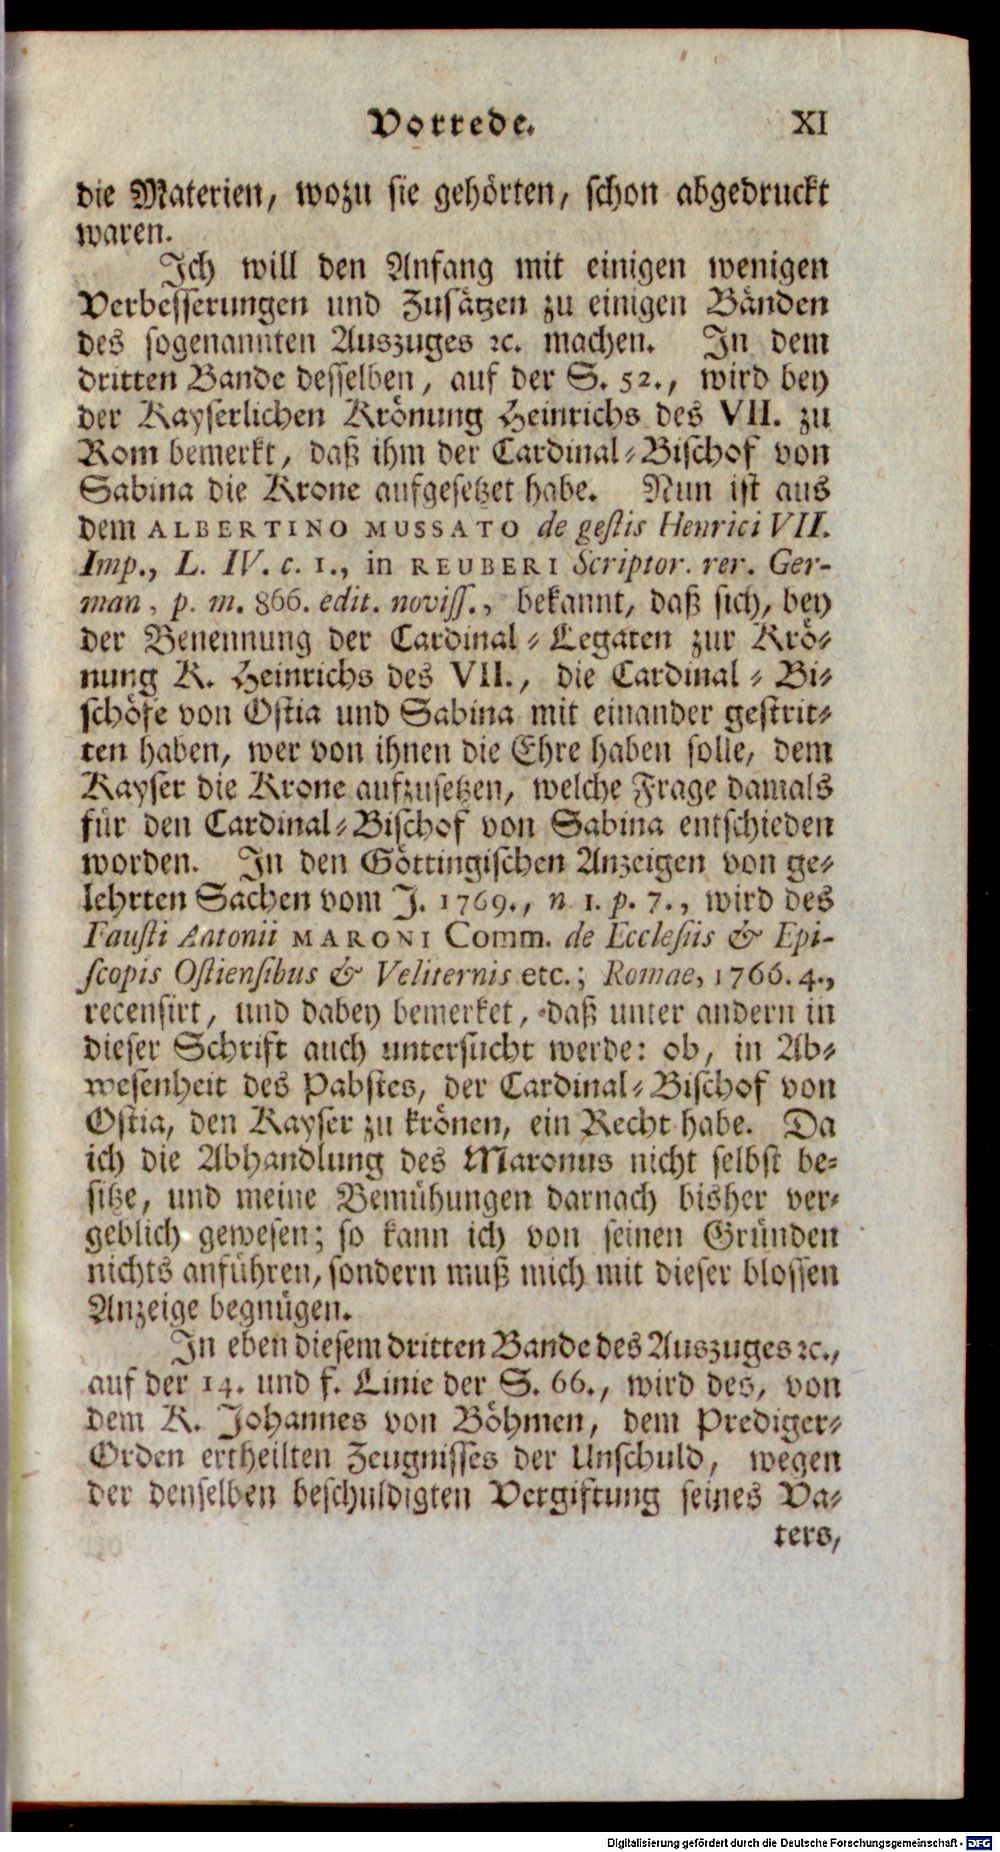 Vorrede. XI
die Materien, wozu sie gehörten, schon abgedruckt
waren.
Ich will den Anfang mit einigen wenigen
Verbesserungen und Zusätzen zu einigen Bänden
des sogenannten Auszuges ꝛc. machen. In dem
dritten Bande desselben, auf der S. 52., wird bey
der Kayserlichen Krönung Heinrichs des VII. zu
Rom bemerkt, daß ihm der Cardinal-Bischof von
Sabina die Krone aufgesetzet habe. Nun ist aus
dem ALBERTINO MUSSATO de gestis Henrici VII.
Imp., L. IV. c. 1., in REUBERI Scriptor. rer. Ger-
man, p. m. 866. edit. noviss., bekannt, daß sich, bey
der Benennung der Cardinal-Legaten zur Krö-
nung K. Heinrichs des VII., die Cardinal-Bi-
schöfe von Ostia und Sabina mit einander gestrit-
ten haben, wer von ihnen die Ehre haben solle, dem
Kayser die Krone aufzusetzen, welche Frage damals
für den Cardinal-Bischof von Sabina entschieden
worden. In den Göttingischen Anzeigen von ge-
lehrten Sachen vom J. 1769., n 1. p. 7., wird des
Fausti Antonii MARONI Comm. de Ecclesiis & Epi-
scopis Ostiensibus & Veliternis etc.; Romae, 1766. 4.,
recensirt, und dabey bemerket, daß unter andern in
dieser Schrift auch untersucht werde: ob, in Ab-
wesenheit des Pabstes, der Cardinal-Bischof von
Ostia, den Kayser zu krönen, ein Recht habe. Da
ich die Abhandlung des Maronus nicht selbst be-
sitze, und meine Bemühungen darnach bisher ver-
geblich gewesen; so kann ich von seinen Gründen
nichts anführen, sondern muß mich mit dieser blossen
Anzeige begnügen.
In eben diesem dritten Bande des Auszuges ꝛc.,
auf der 14. und f. Linie der S. 66., wird des, von
dem K. Johannes von Böhmen, dem Prediger-
Orden ertheilten Zeugnisses der Unschuld, wegen
der denselben beschuldigten Vergiftung seines Va-
ters,
Digitalisierung gefördert durch die Deutsche Forschungsgemeinschaft - DFG